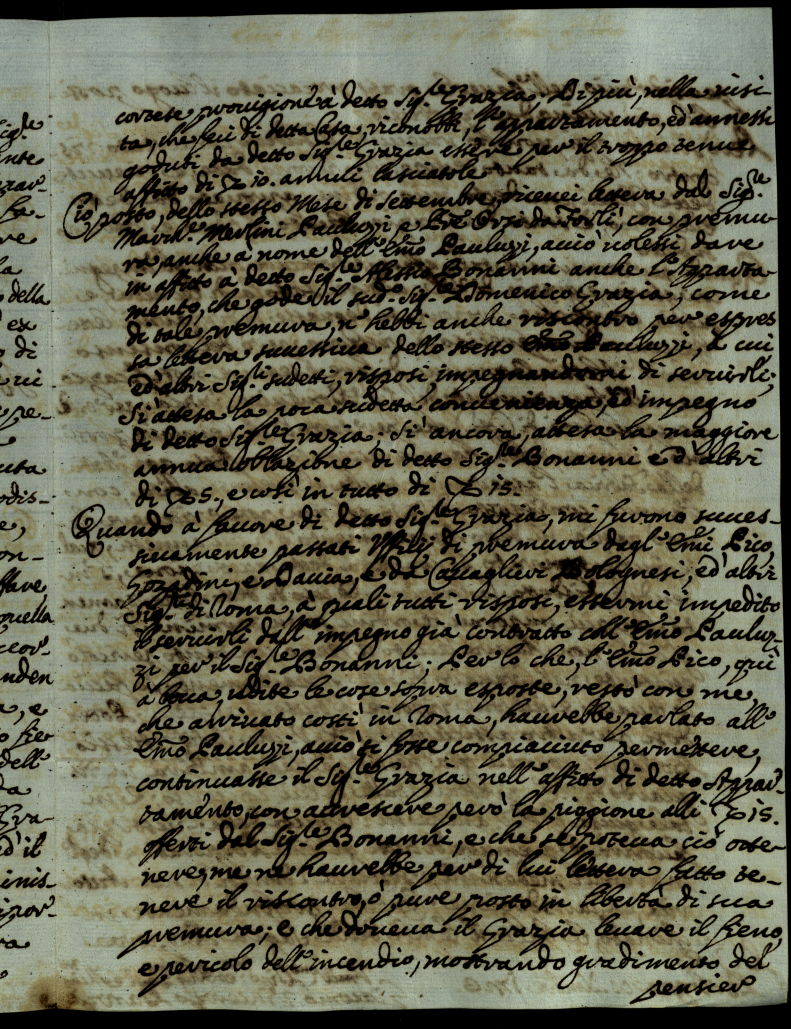 correte provigione à detto Sig.re Grazia; Di più, nella visi-
ta, che feci di detta Casa, riconobbi, l'appartamento, ed annessi
goduti da detto Sig.re Grazia essere per il troppo tenue
affitto di 10. annui lasciatole
Ciò posto, dello stesso Mese di Settembre, ricevei lettera dal Sig.re
March.e Merlini Pauluzzi e Orsi da Forlì, con premu-
ra, anche a nome dell' Em̃o Pauluzzi, acciò volessi dare
in affitto à detto Sig.re Alessio Bonanni anche l'Apparta-
mento, che gode il sud.o Sig.re Domenico Grazia, come
di tale premura, n' hebbi anche riscontro per espres
sa lettera successiva dello stesso Em̃o Pauluzzi, à cui
ed altri Sig.ri sudetti, risposi impegnandomi di servirli;
Sì attesa la poca sudetta convenienza, ed impegno
di detto Sig.re Grazia; Sì ancora, attesa la maggiore
annua oblazione di detto Sig.re Bonanni e d' altri
di 5., e così in tutto di 15.
Quando à favore di detto Sig.re Grazia, mi furono succes-
sivamente passati Uffizij di premura dagl' Em̃i Pico,
Gozzadini, e Davia, e da Cavaglieri Bolognesi, ed altri
Sig.ri di Roma, à quali tutti risposi, essermi impedito
il servirli dall' impegno già contratto coll' Em̃o Pauluz-
zi per il Sig.re Bonanni; Per lo che, l' Em̃o Pico, quì
à boca, udite le cose sopra esposte, restò con me,
che arrivato costì in Roma, haurebbe parlato all'
Em̃o Pauluzzi, acciò si fosse compiaciuto permettere,
continuasse il Sig.re Grazia nell' affitto di detto Appar-
tamento, con accrescere però la piggione alli 15.
offerti dal Sig.re Bonanni, e che se poteva ciò otte-
nere, me ne haurebbe per di lui lettera fatto te-
nere il riscontro, ò pure posto in libertà di sua
premura; e che doveva il Grazia levare il fieno,
e pericolo dell' incendio, mostrando gradimento del
pensier